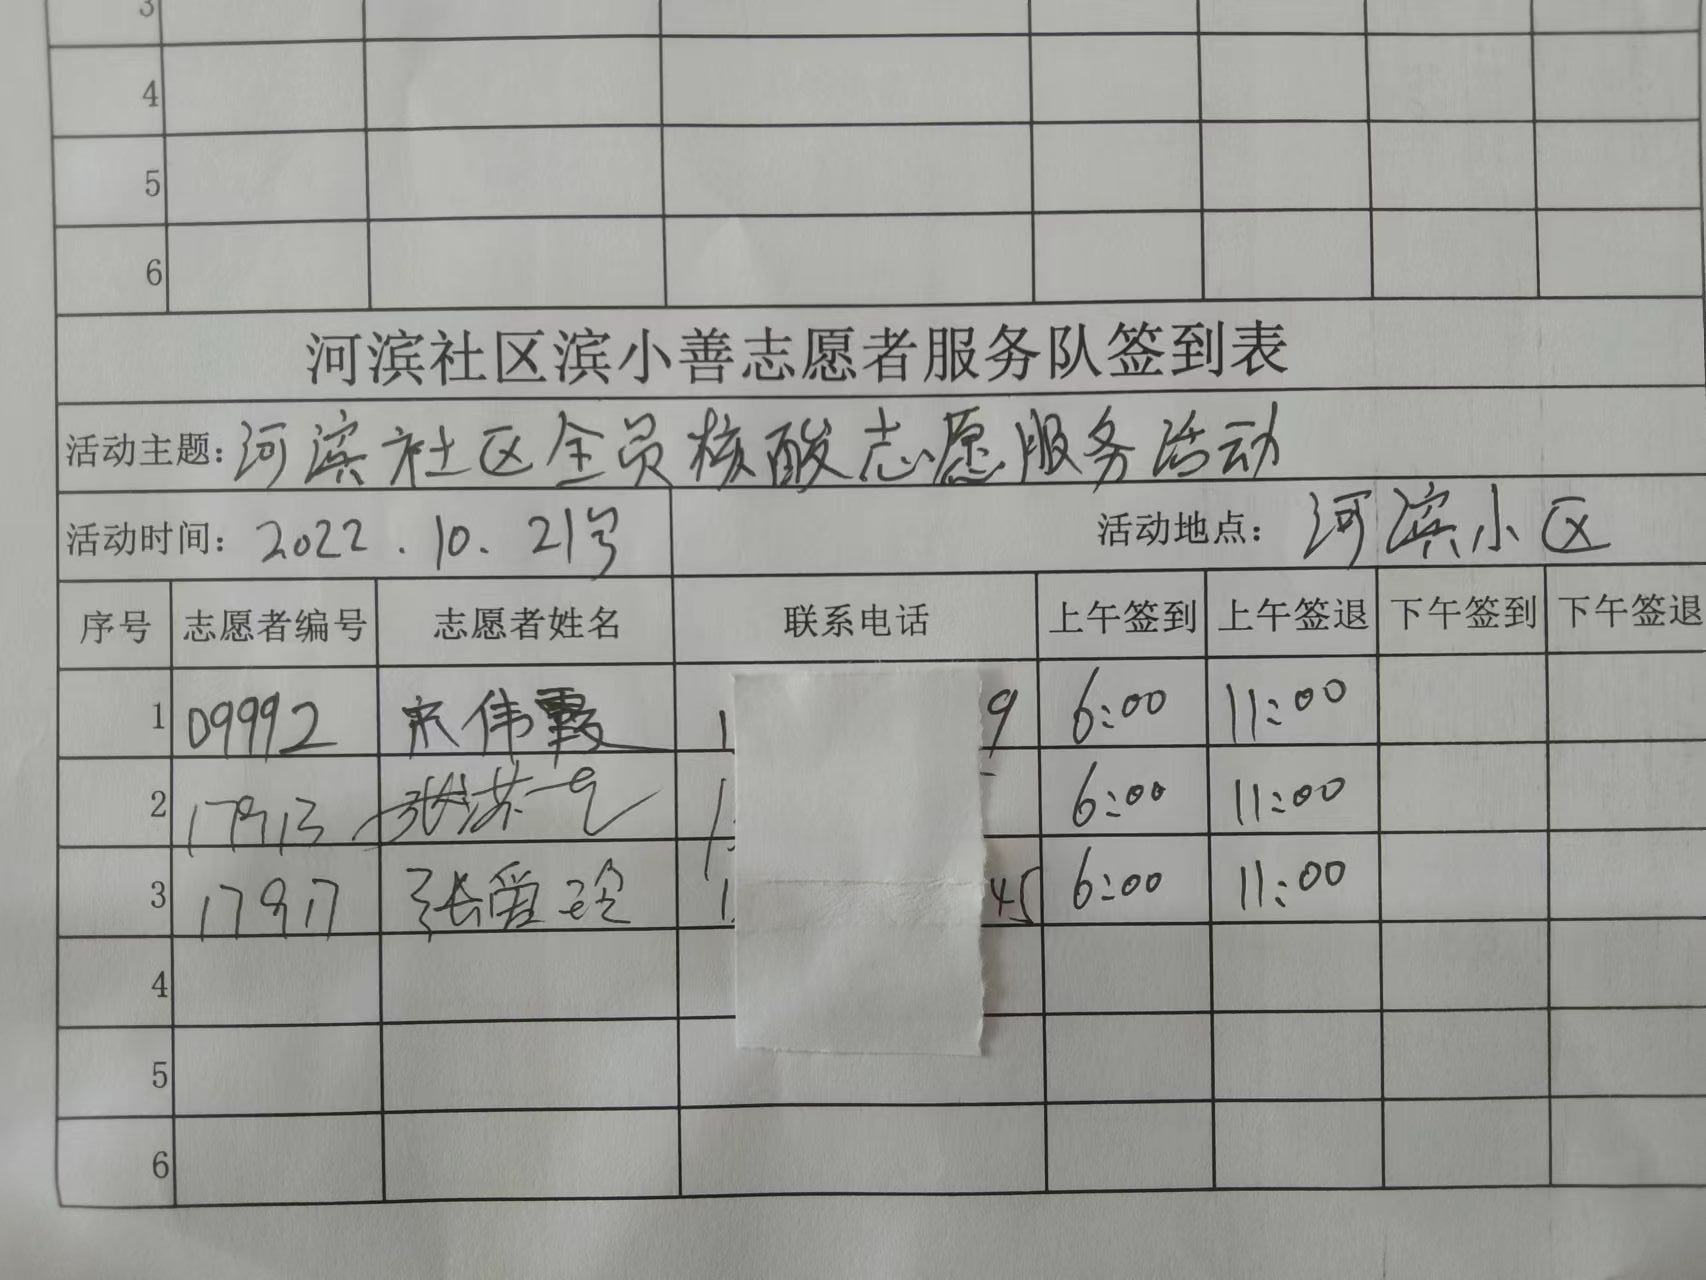 3
4
5
6
河滨社区滨小善志愿者服务队签到表
活动主题: 河滨社区全员核酸志愿服务活动
活动时间: 2022.10.21号 活动地点: 河滨小区
序号 志愿者编号 志愿者姓名 联系电话 上午签到 上午签退 下午签到 下午签退
1 09992 宋伟霞 1 9 6:00 11:00
2 17913 张 1 6:00 11:00
3 17917 张爱玲 1 45 6:00 11:00
4
5
6